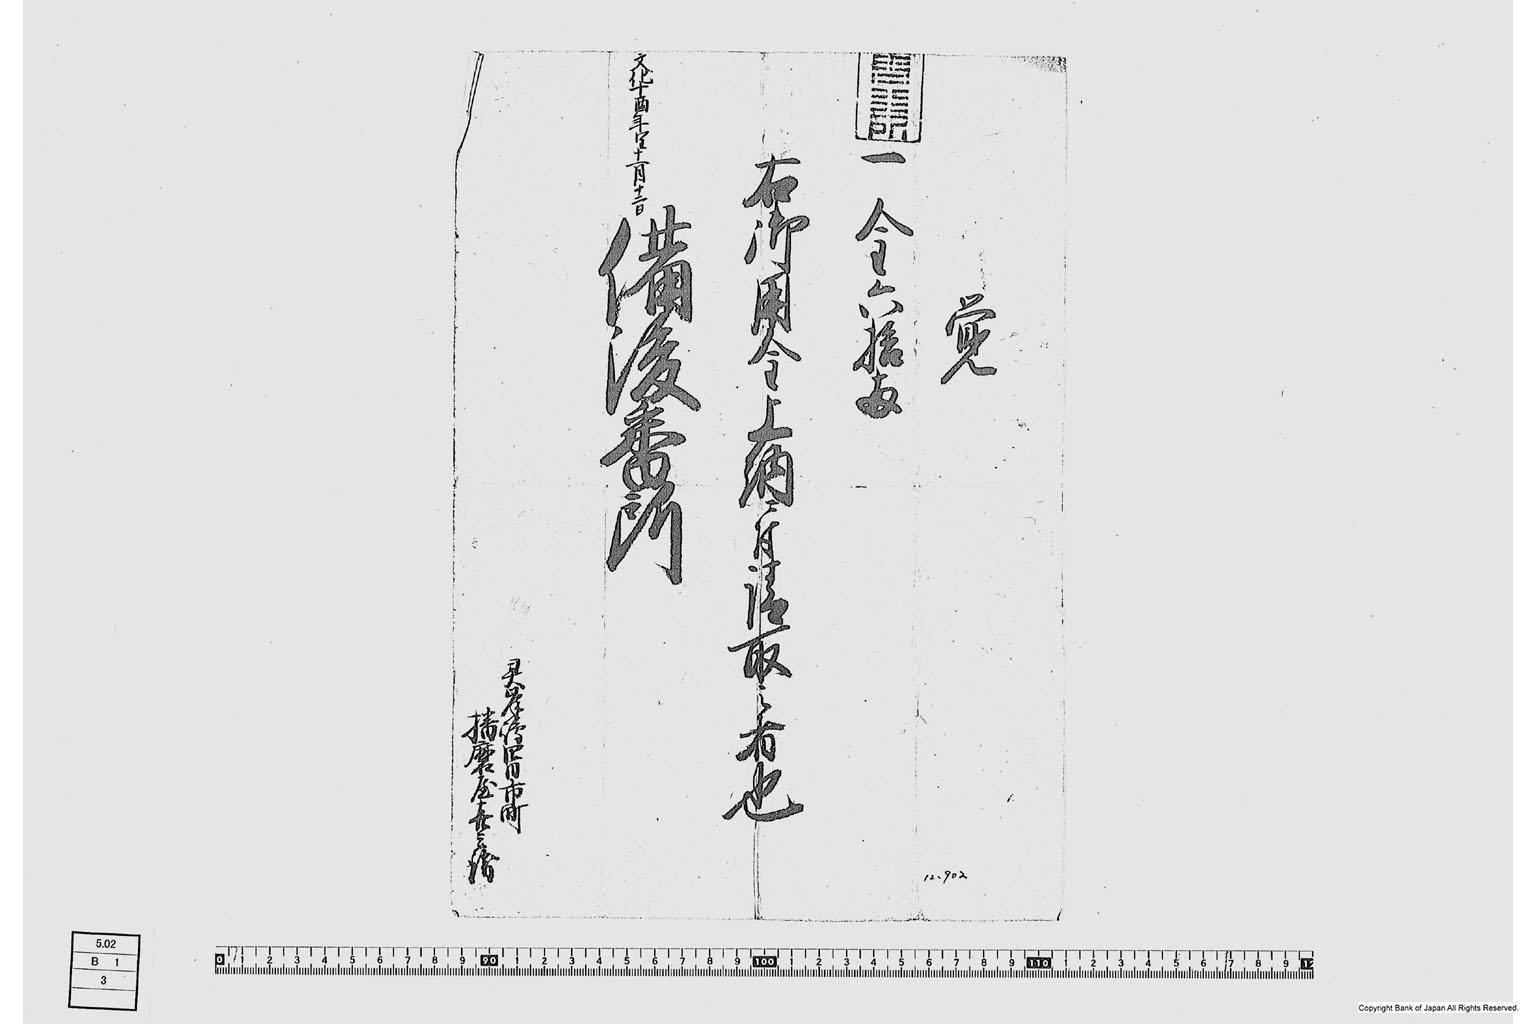 覚
一 金六拾両
右御用金上納ニ付請取之者也
文化十酉年閏十一月十二日
備後番所
灵岸嶋四日市町
播磨屋喜
12.902
5.02
B 1
3
0 1 2 3 4 5 6 7 8 9 90 1 2 3 4 5 6 7 8 9 100 1 2 3 4 5 6 7 8 9 110 1 2 3 4 5 6 7 8 9 12
Copyright Bank of Japan All Rights Reserved.